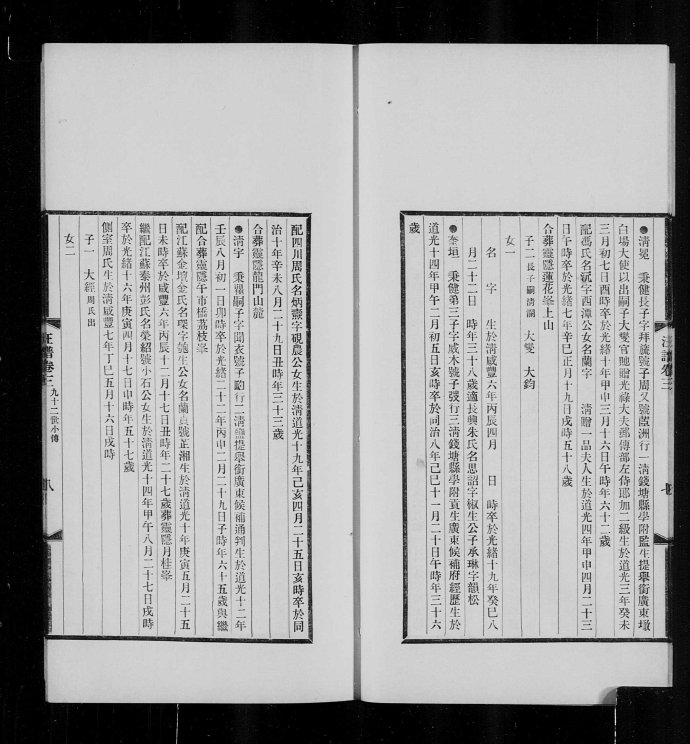 ●清冕　秉健長子字拜颺號子周又號蔎洲行一清錢塘縣學附監生提舉銜廣東墩
白場大使以出嗣子大燮官貤贈光祿大夫郵傳部左侍郎加二級生於道光三年癸未
三月初七日酉時卒於光緒十年甲申三月十六日午時年六十二歲
配馮氏名　字西潭公女名蘭字　清贈一品夫人生於道光四年甲申四月二十三
日午時卒於光緒七年辛巳正月十九日戌時五十八歲
合葬靈隱蓮花峯上山
子二　長子嗣清澜　大燮　大鈞
女一
名　字　生於清咸豐六年丙辰四月　日　時卒於光緒十九年癸巳八
月二十二日　時年三十八歲適長興朱氏名思詔字椒生公子承琳字韻松
●奎垣　秉健第三子字咸木號子發行三清錢塘縣學附貢生廣東候補府經歷生於
道光十四年甲午二月初五日亥時卒於同治八年己巳十一月二十日午時年三十六
歲
汪譜卷三
配四川周氏名炳燾字硯農公女生於清道光十九年己亥四月二十五日亥時卒於同
治十年辛未八月二十九日丑時年三十三歲
合葬靈隱龍門山麓
●清宇　秉　嗣子字聞衣號子韵行二清鹽提舉銜廣東候補通判生於道光十二年
壬辰八月初一日卯時卒於光緒二十二年丙申二月二十九日子時年六十五歲與繼
配合葬靈隱午市橋荔枝峯
配江蘇金壇金氏名　字　生公女名蘭貞號芷湘生於清道光十年庚寅五月二十五
日未時卒於咸豐六年丙辰十二月十七日丑時年二十七歲葬靈隱月桂峯
繼配江蘇泰州彭氏名榮紹號小石公女生於清道光十四年甲午八月二十七日戌時
卒於光緒十六年庚寅四月十七日申時年五十七歲
側室周氏生於清咸豐七年丁巳五月十六日戌時
子一　大經周氏出
女二
汪譜卷三　九十二世小傳　八